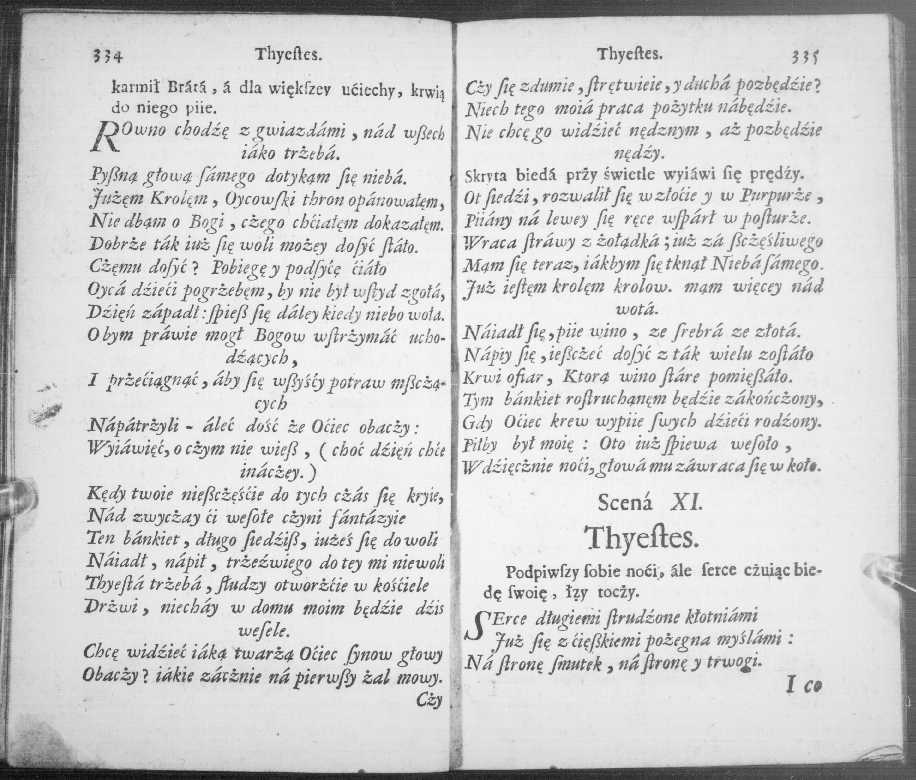 334 Thyeſtes.
karmił Brátá, á dla więkſzey ućiechy, krwią
do niego piie.
ROwno chodźę z gwiazdámi, nád wßech
iáko trżebá.
Pyſßną głową ſámego dotykąm ſię niebá.
Jużęm Krolęm, Oycowſki thron opánowałęm,
Nie dbąm o Bogi, cżego chćiałęm dokazałęm.
Dobrże ták iuż ſię woli możey doſyć ſtáło.
Cżęmu doſyć? Pobiegę y podſycę ćiáło
Oycá dźieći pogrżebęm, by nie był wſtyd zgołá,
Dżięń západł: ſpieß ſię dáley kiedy niebo woła.
Obym práwie mogł Bogow wſtrżymáć ucho-
dźących,
I prżećiągnąć, áby ſię wßyśćy potraw mßcżą-
cych
Nápátrżyli - áleć dość że Oćiec obacży:
Wyiáwięć, o cżym nie wieß, (choć dżięń chće
inácżey.)
Kędy twoie nießcżęśćie do tych cżás ſię kryie,
Nád zwycżay ći weſołe cżyni fántázyie
Ten bánkiet, długo ſiedźiß, iużeś ſię do woli
Náiadł, nápił, trżeźwiego do tey mi niewoli
Thyeſtá trżebá, ſłudzy otworżćie w kośćiele
Drżwi, niecháy w domu moim będźie dźis
weſele.
Chcę widźieć iáką twarżą Oćiec ſynow głowy
Obacży? iákie zácżnie ná pierwßy żal mowy.
Cży
Thyeſtes. 335
Cży ſię zdumie, ſtrętwieie, y duchá pozbędźie?
Niech tego moiá praca pożytku nábędźie.
Nie chcę go widźieć nędznym, aż pozbędźie
nędzy.
Skryta biedá prży świetle wyiáwi ſię prędzy.
Ot ſiedźi, rozwalił ſię w złoćie y w Purpurże,
Piiány ná lewey ſię ręce wſpárł w poſturże.
Wraca ſtráwy z żołądká; iuż zá ßcżęśliwego
Mąm ſię teraz, iákbym ſię tknął Niebá ſámego.
Już ieſtęm krolęm krolow. mąm więcey nád
wotá.
Náiadł ſię, piie wino, ze ſrebrá ze złotá.
Nápiy ſię, ießcżeć doſyć z ták wielu zoſtáło
Krwi ofiar, Ktorą wino ſtáre pomießáło.
Tym bánkiet roſtruchąnęm będźie zákończony,
Gdy Oćiec krew wypiie ſwych dźieći rodźony.
Piłby był moię: Oto iuż ſpiewa weſoło,
W dźięcżnie noći, głowá mu záwraca ſię w koło.
Scená XI.
Thyeſtes.
Podpiwſzy ſobie noći, ále ſerce cżuiąc bie-
dę ſwoię, łzy tocży.
SErce długiemi ſtrudzone kłotniámi
Już ſię z ćięßkiemi pożegna myślámi:
Ná ſtronę ſmutek, ná ſtronę y trwogi.
I co